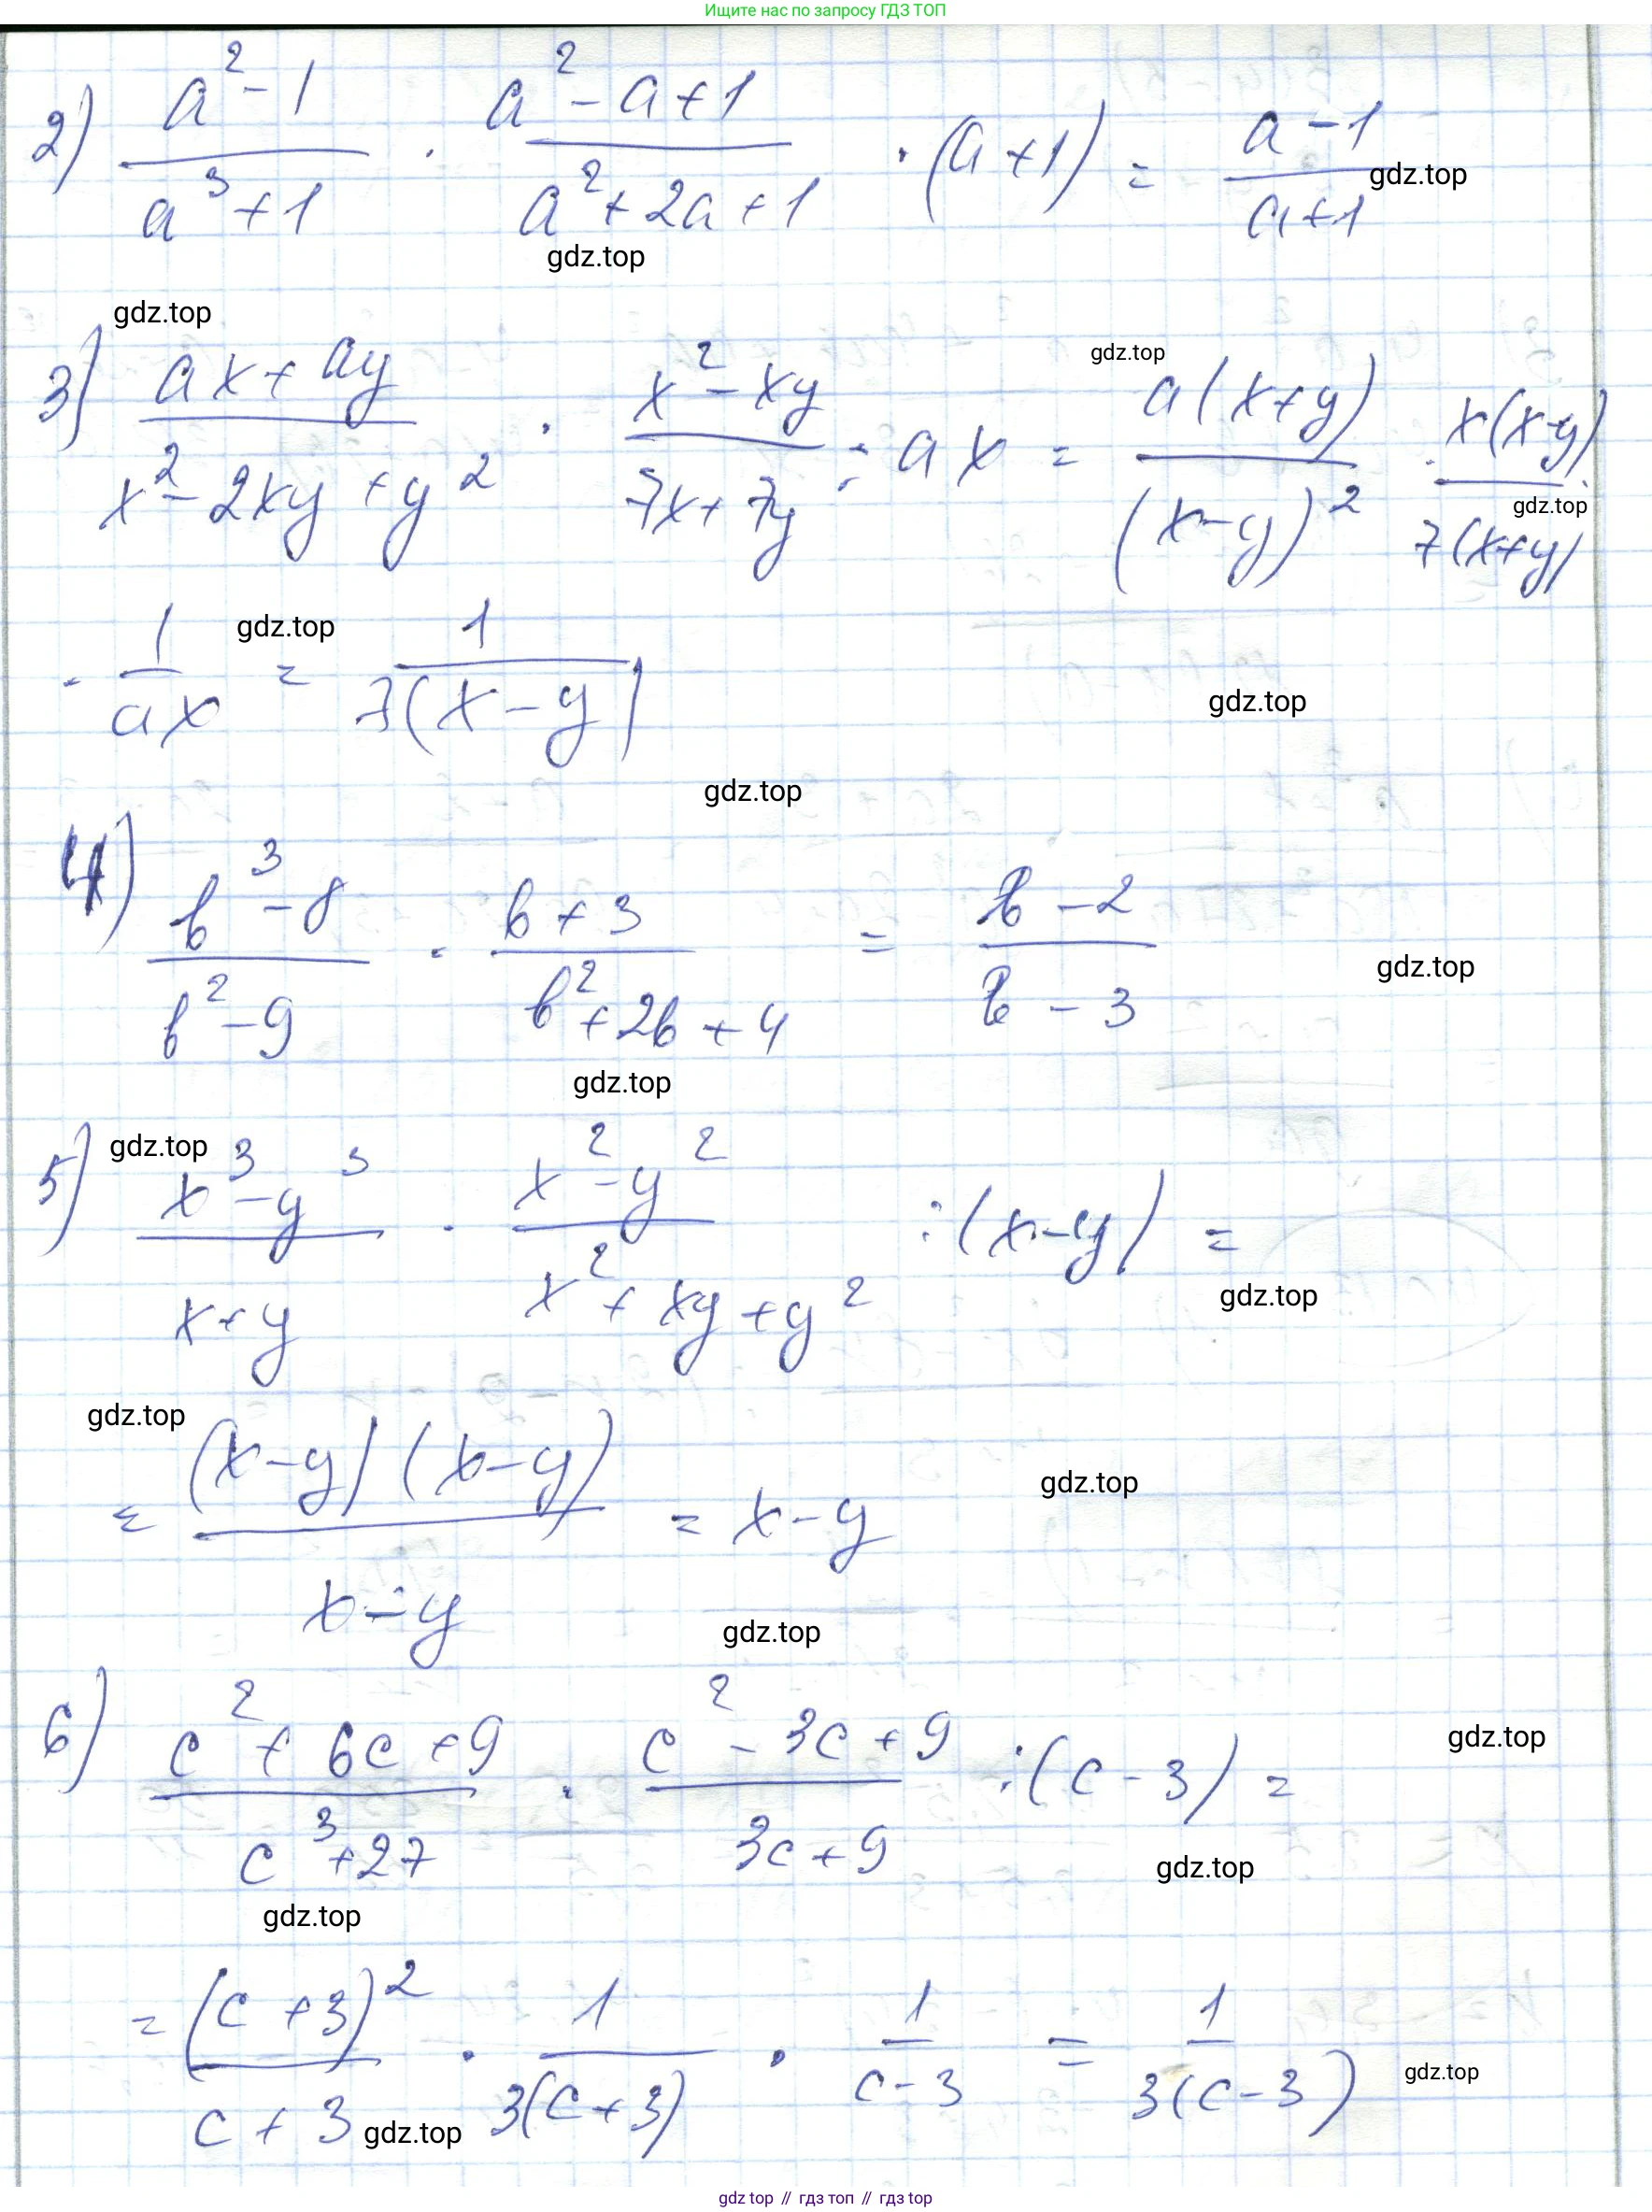 Ищите нас по запросу ГДЗ ТОП
2) (a² - 1)/(a³ + 1) · (a² - a + 1)/(a² + 2a + 1) · (a + 1) = (a - 1)/(a + 1) gdz.top
gdz.top
gdz.top
gdz.top
3) (ax + ay)/(x² - 2xy + y²) · (x² - xy)/(7x + 7y) : ax = a(x + y)/(x - y)² · x(x - y)/7(x + y) ·
gdz.top
· 1/ax = 1/7(x - y)
gdz.top
gdz.top
gdz.top
4) (b³ - 8)/(b² - 9) · (b + 3)/(b² + 2b + 4) = (b - 2)/(b - 3)
gdz.top
gdz.top
gdz.top
5) (x³ - y³)/(x + y) · (x² - y²)/(x² + xy + y²) : (x - y) =
gdz.top
gdz.top
= (x - y)(x - y)/(x - y) = x - y
gdz.top
gdz.top
6) (c² + 6c + 9)/(c³ + 27) · (c² - 3c + 9)/(3c + 9) : (c - 3) =
gdz.top
gdz.top
gdz.top
= (c + 3)²/(c + 3) · 1/3(c + 3) · 1/(c - 3) = 1/3(c - 3)
gdz.top
gdz.top
gdz top // гдз топ // гдз top